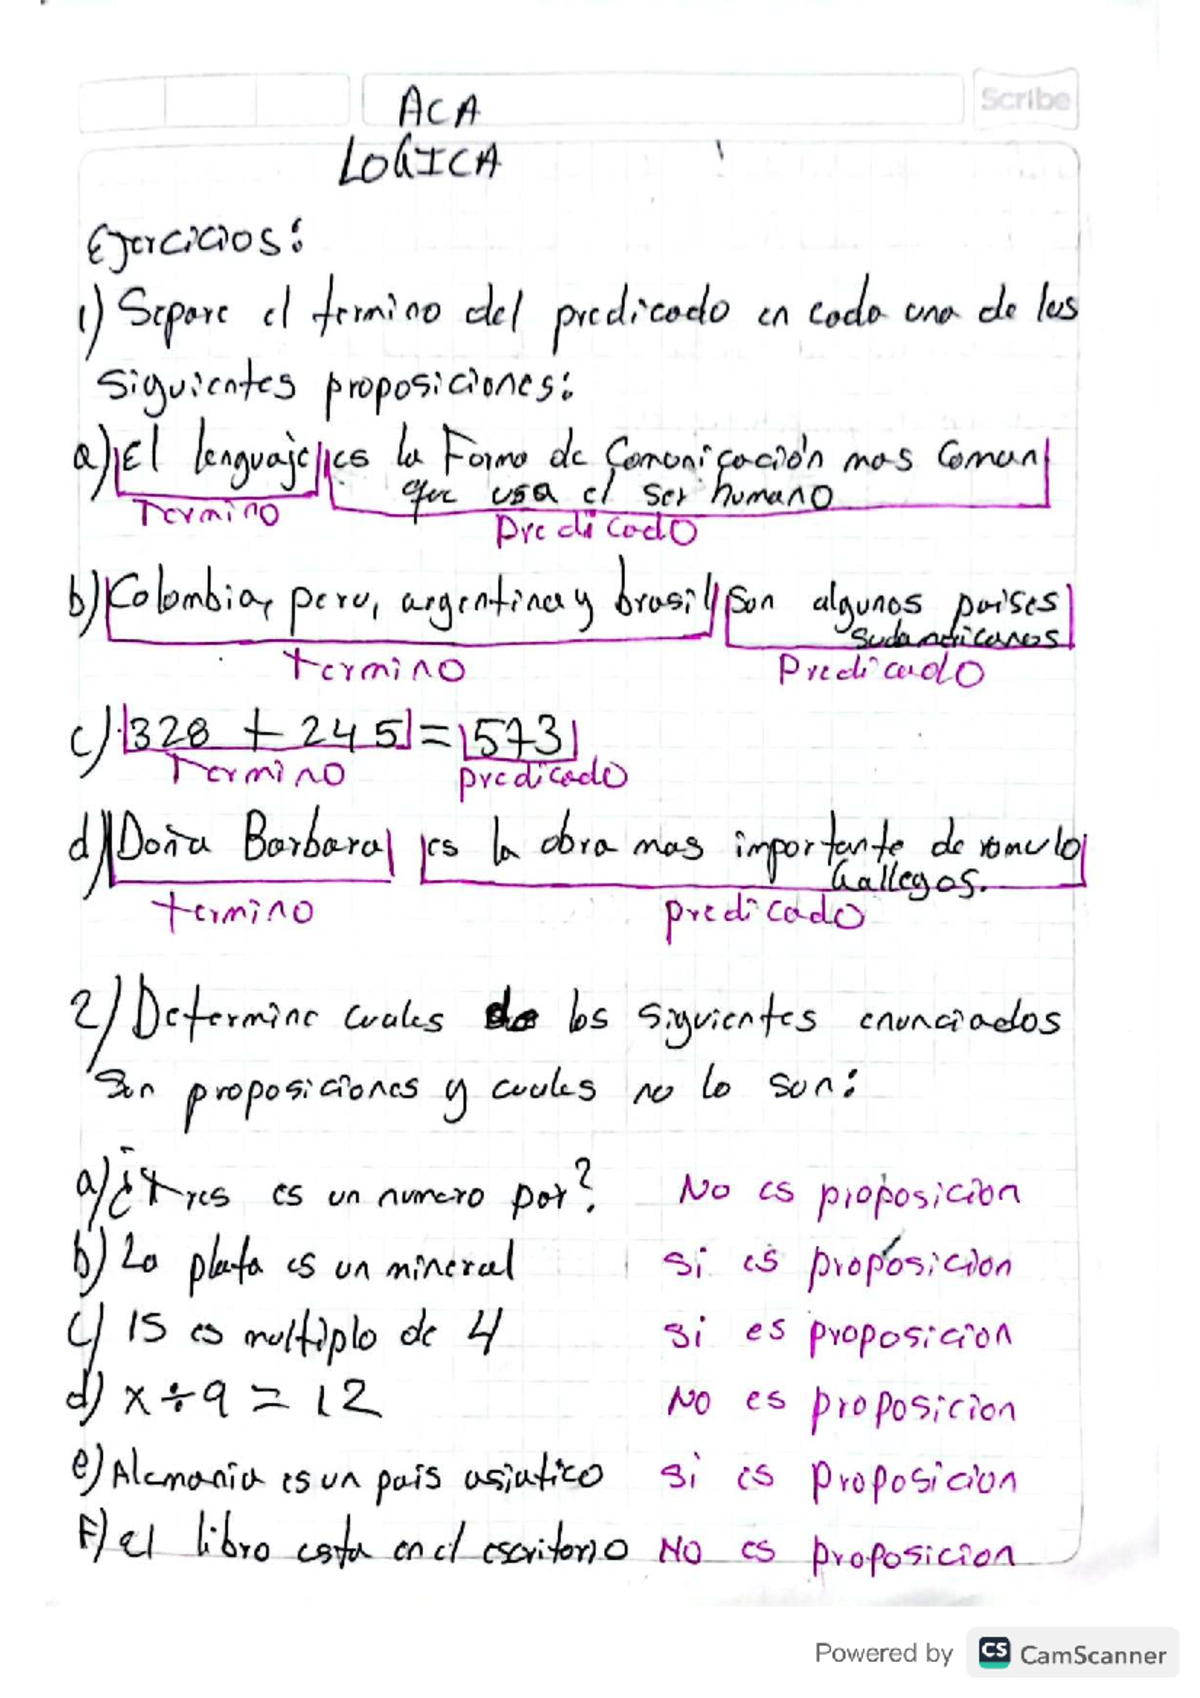 Scribe
ACA
LOGICA
Ejercicios:
1) Separe el termino del predicado en cada una de las
siguientes proposiciones:
a) El lenguaje es la Forma de Comunicación mas Comun
que usa el ser humano
Termino
Predicado
b) Colombia, peru, argentina y brasil son algunos paises
sudamericanos
termino
Predicado
c) 328 + 245 = 573
Termino
predicado
d) Doña Barbara es la obra mas importante de romulo
Gallegos.
termino
predicado
2) Determine cuales de los siguientes enunciados
son proposiciones y cuales no lo son:
a) ¿tres es un numero par? No es proposicion
b) La plata es un mineral si es proposicion
c) 15 es multiplo de 4 si es proposicion
d) x ÷ 9 = 12 No es proposicion
e) Alemania es un pais asiatico si es proposicion
F) el libro esta en el escritorio No es proposicion
Powered by CS CamScanner